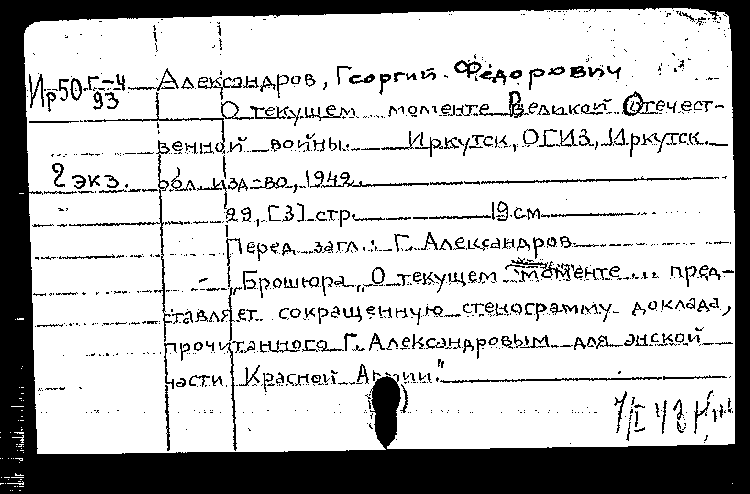 Ир50 Г-4 Александров, Георгий Фёдорович
93
О текущем моменте Великой Отечест-
венной войны. Иркутск, ОГИЗ, Иркутск.
2 экз. обл. изд-во, 1942.
29, [3] стр. 19 см
Перед загл.: Г. Александров
„Брошюра „О текущем моменте... пред-
ставляет сокращенную стенограмму доклада,
прочитанного Г. Александровым для энской
части Красной Армии."
7/I 43